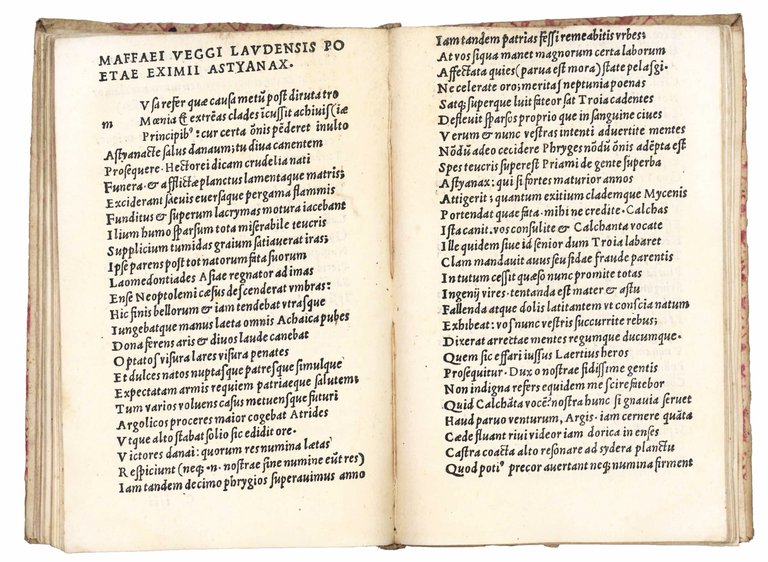 MAFFAEI VEGGI LAVDENSIS PO
ETAE EXIMII ASTYANAX.
m
Vsa refer quæ causa metũ post diruta tro
Mœnia &̃ extrẽas clades ĩcussit achiuis (iæ
Principib⁹: cur certa õnis pẽderet inulto
Astyanacte salus danaum; tu diua canentem
Prosequere. Hectorei dicam crudelia nati
Funera. & afflictæ planctus lamentaque matris;
Exciderant sæuis euersaque pergama flammis
Funditus & superum lacrymas motura iacebant
Ilium humo sparsum tota miserabile teucris
Supplicium tumidas graium satiauerat iras;
Ipse parens post tot natorum fata suorum
Laomedontiades Asiae regnator ad imas
Ense Neoptolemi cæsus descenderat vmbras:
Hic finis bellorum & iam tendebat vtrasque
Iungebatque manus laeta omnis Achaica pubes
Dona ferens aris & diuos laude canebat
Optatos visura lares visura penates
Et dulces natos nuptasque patresque simulque
Expectatam armis requiem patriaeque salutem.
Tum varios voluens casus metuensque futuri
Argolicos proceres maior cogebat Atrides
Vtque alto stabat solio sic edidit ore.
Victores danai: quorum res numina lætas
Respiciunt (neq; .n. nostrae sine numine eũt res)
Iam tandem decimo phrygios superauimus anno
Iam tandem patrias fessi remeabitis vrbes;
At vos siqua manet magnorum certa laborum
Affectata quies (parua est mora) state pelasgi.
Ne celerate oro; meritas neptunia poenas
Satq; superque luit fateor sat Troia cadentes
Defleuit sparsos proprio que in sanguine ciues
Verum & nunc vestras intenti aduertite mentes
Nõdũ adeo cecidere Phryges nõdũ õnis adẽpta est
Spes teucris superest Priami de gente superba
Astyanax: qui si fortes maturior annos
Attigerit; quantum exitium clademque Mycenis
Portendat quae fata. mihi ne credite. Calchas
Ista canit. vos consulite & Calchanta vocate
Ille quidem siue id senior dum Troia labaret
Clam mandauit auus seu fidae fraude parentis
In tutum cessit quæso nunc promite totas
Ingenij vires. tentanda est mater & astu
Fallenda atque dolis latitantem vt conscia natum
Exhibeat: vos nunc vestris succurrite rebus;
Dixerat arrectae mentes regumque ducumque.
Quem sic effari iussus Laertius heros
Prosequitur. Dux o nostrae fidissime gentis
Non indigna refers equidem me scire fatebor
Quid Calchãta vocẽ? nostra hunc si gnauia seruet
Haud paruo venturum, Argis. iam cernere quãta
Cæde fluant riui videor iam dorica in enses
Castra coacta alto resonare ad sydera planctu
Quod poti⁹ precor auertant neq; numina firment